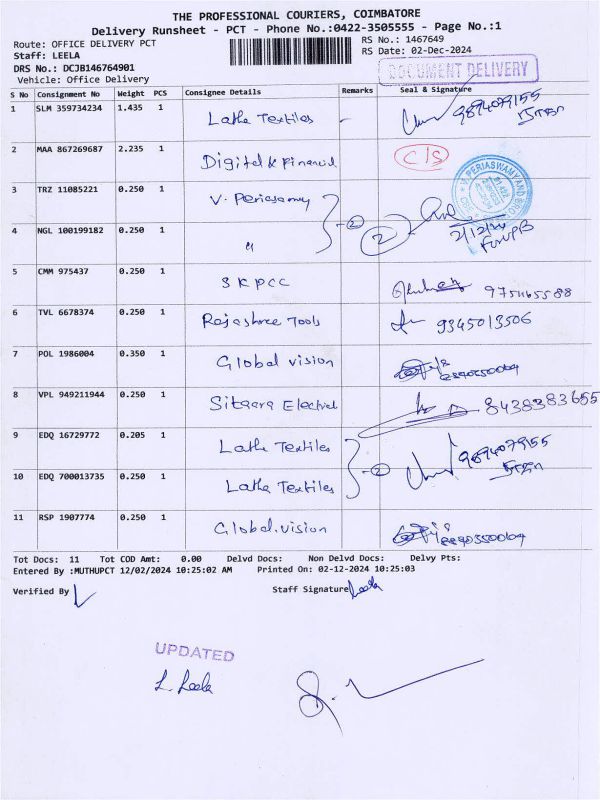 THE PROFESSIONAL COURIERS, COIMBATORE
Delivery Runsheet - PCT - Phone No.:0422-3505555 - Page No.:1
Route: OFFICE DELIVERY PCT
RS No.: 1467649
Staff: LEELA
RS Date: 02-Dec-2024
DRS No.: DCJB146764901
DOCUMENT DELIVERY
Vehicle: Office Delivery
S No Consignment No Weight PCS Consignee Details Remarks Seal & Signature
1 SLM 359734234 1.435 1 Latha Textiles 9894079155
2 MAA 867269687 2.235 1 Digital & Financial C/S
3 TRZ 11085221 0.250 1 V. Periasamy
4 NGL 100199182 0.250 1 " 2 2 2/12/24
5 CMM 975437 0.250 1 SKPCC
6 TVL 6678374 0.250 1 Rajashree Tools 9345013506
7 POL 1986004 0.350 1 Global vision
8 VPL 949211944 0.250 1 Sitaara Electral 8438383655
9 EDQ 16729772 0.205 1 Latha Textiles 9894079155
10 EDQ 700013735 0.250 1 Latha Textiles 2
11 RSP 1907774 0.250 1 Global.vision
Tot Docs: 11 Tot COD Amt: 0.00 Delvd Docs: Non Delvd Docs: Delvy Pts:
Entered By :MUTHUPCT 12/02/2024 10:25:02 AM Printed On: 02-12-2024 10:25:03
Verified By Staff Signature Leela
UPDATED
L. Leela